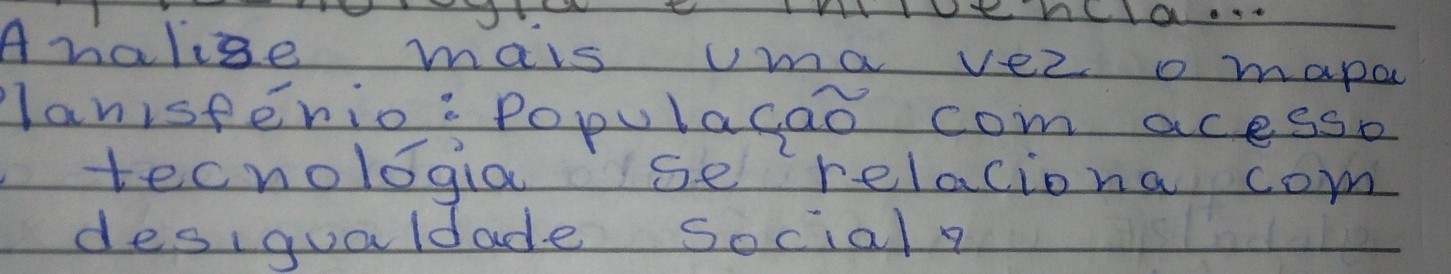 e influencia...
Analise mais uma vez o mapa
Planisfério: População com acesso
tecnológia se relaciona com
desigualdade social?